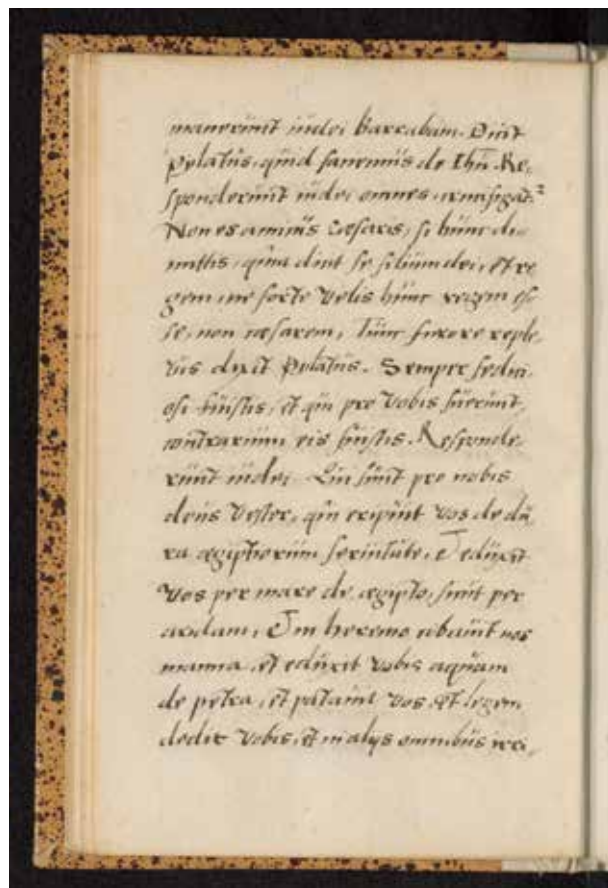 manerunt iudei Barrabam. Dixit
Pylatus, quid faciemus de Ihu. Re,
sponderunt iudei omnes,
Non es amicus Cæsaris, si hunc di,
mittis, quia dixit se filium dei, et re
gem, ne forte velis hunc regem es
se, non cæsarem, Tunc furore reple,
tus dixit Pylatus. Semper sedici,
osi fuistis, et qui pro vobis fuerunt,
contrarium eis fuistis. Responde,
runt iudei. Qui sunt pro nobis
deus vester, qui eripuit vos de du,
ra ægiptiorum servitute, et eduxit
vos per mare de ægipto, sicut per
aridam, Et in heremo cibauit vos
manna, et eduxit vobis aquam
de petra, et potauit vos. et legem
dedit vobis, et in alijs omnibus